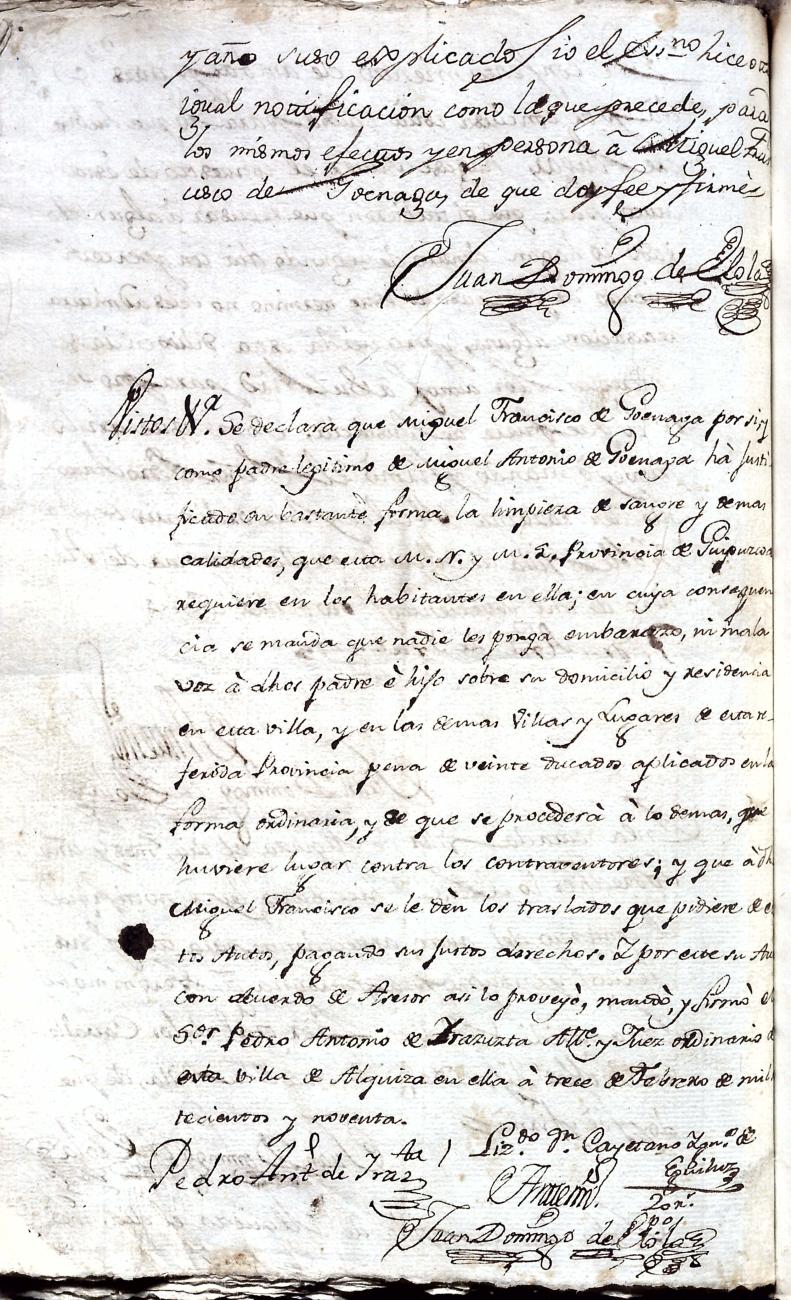 y año suso esplicado Yo el Ess.no hice otra
igual notificación como la que precede, para
los mismos efectos y en persona â Miguel Fran
cisco de Goenaga, de que doy fee y firmè
Juan Domingo de Elola
Vistos V.a Se declara que Miguel Francisco de Goenaga por si, y
como padre legitimo de Miguel Antonio de Goenaga hà Justi
ficado en bastante forma, la limpieza de sangre y demas
calidades, que esta M. N. y M. L. Provincia de Guipuzcoa
requiere en los habitantes en ella; en cuya consequen
cia se manda que nadie les ponga embarazo, ni mala
voz à dhos padre è hijo sobre su domicilio y residencia
en esta villa, y en las demas Villas y Lugares de esta re-
ferida Provincia pena de veinte ducados aplicados en la
forma ordinaria, y de que se procederà à lo demas, que
huviere lugar contra los contraventores; y que à dh
Miguel Francisco se le dèn los traslados que pidiere de es
tos Autos, pagando sus Justos derechos. Y por este su Au
con acuerdo de Asesor asi lo proveyò, mandò, y firmò el
S.or Pedro Antonio de Irazuzta Alc.e y Juez ordinario de
esta villa de Alquiza en ella à trece de Febrero de mil
tecientos y noventa.
Pedro Ant.o de Iraz.ta
Liz.do Dn. Cayetano
Antemi
Juan Domingo de Elola